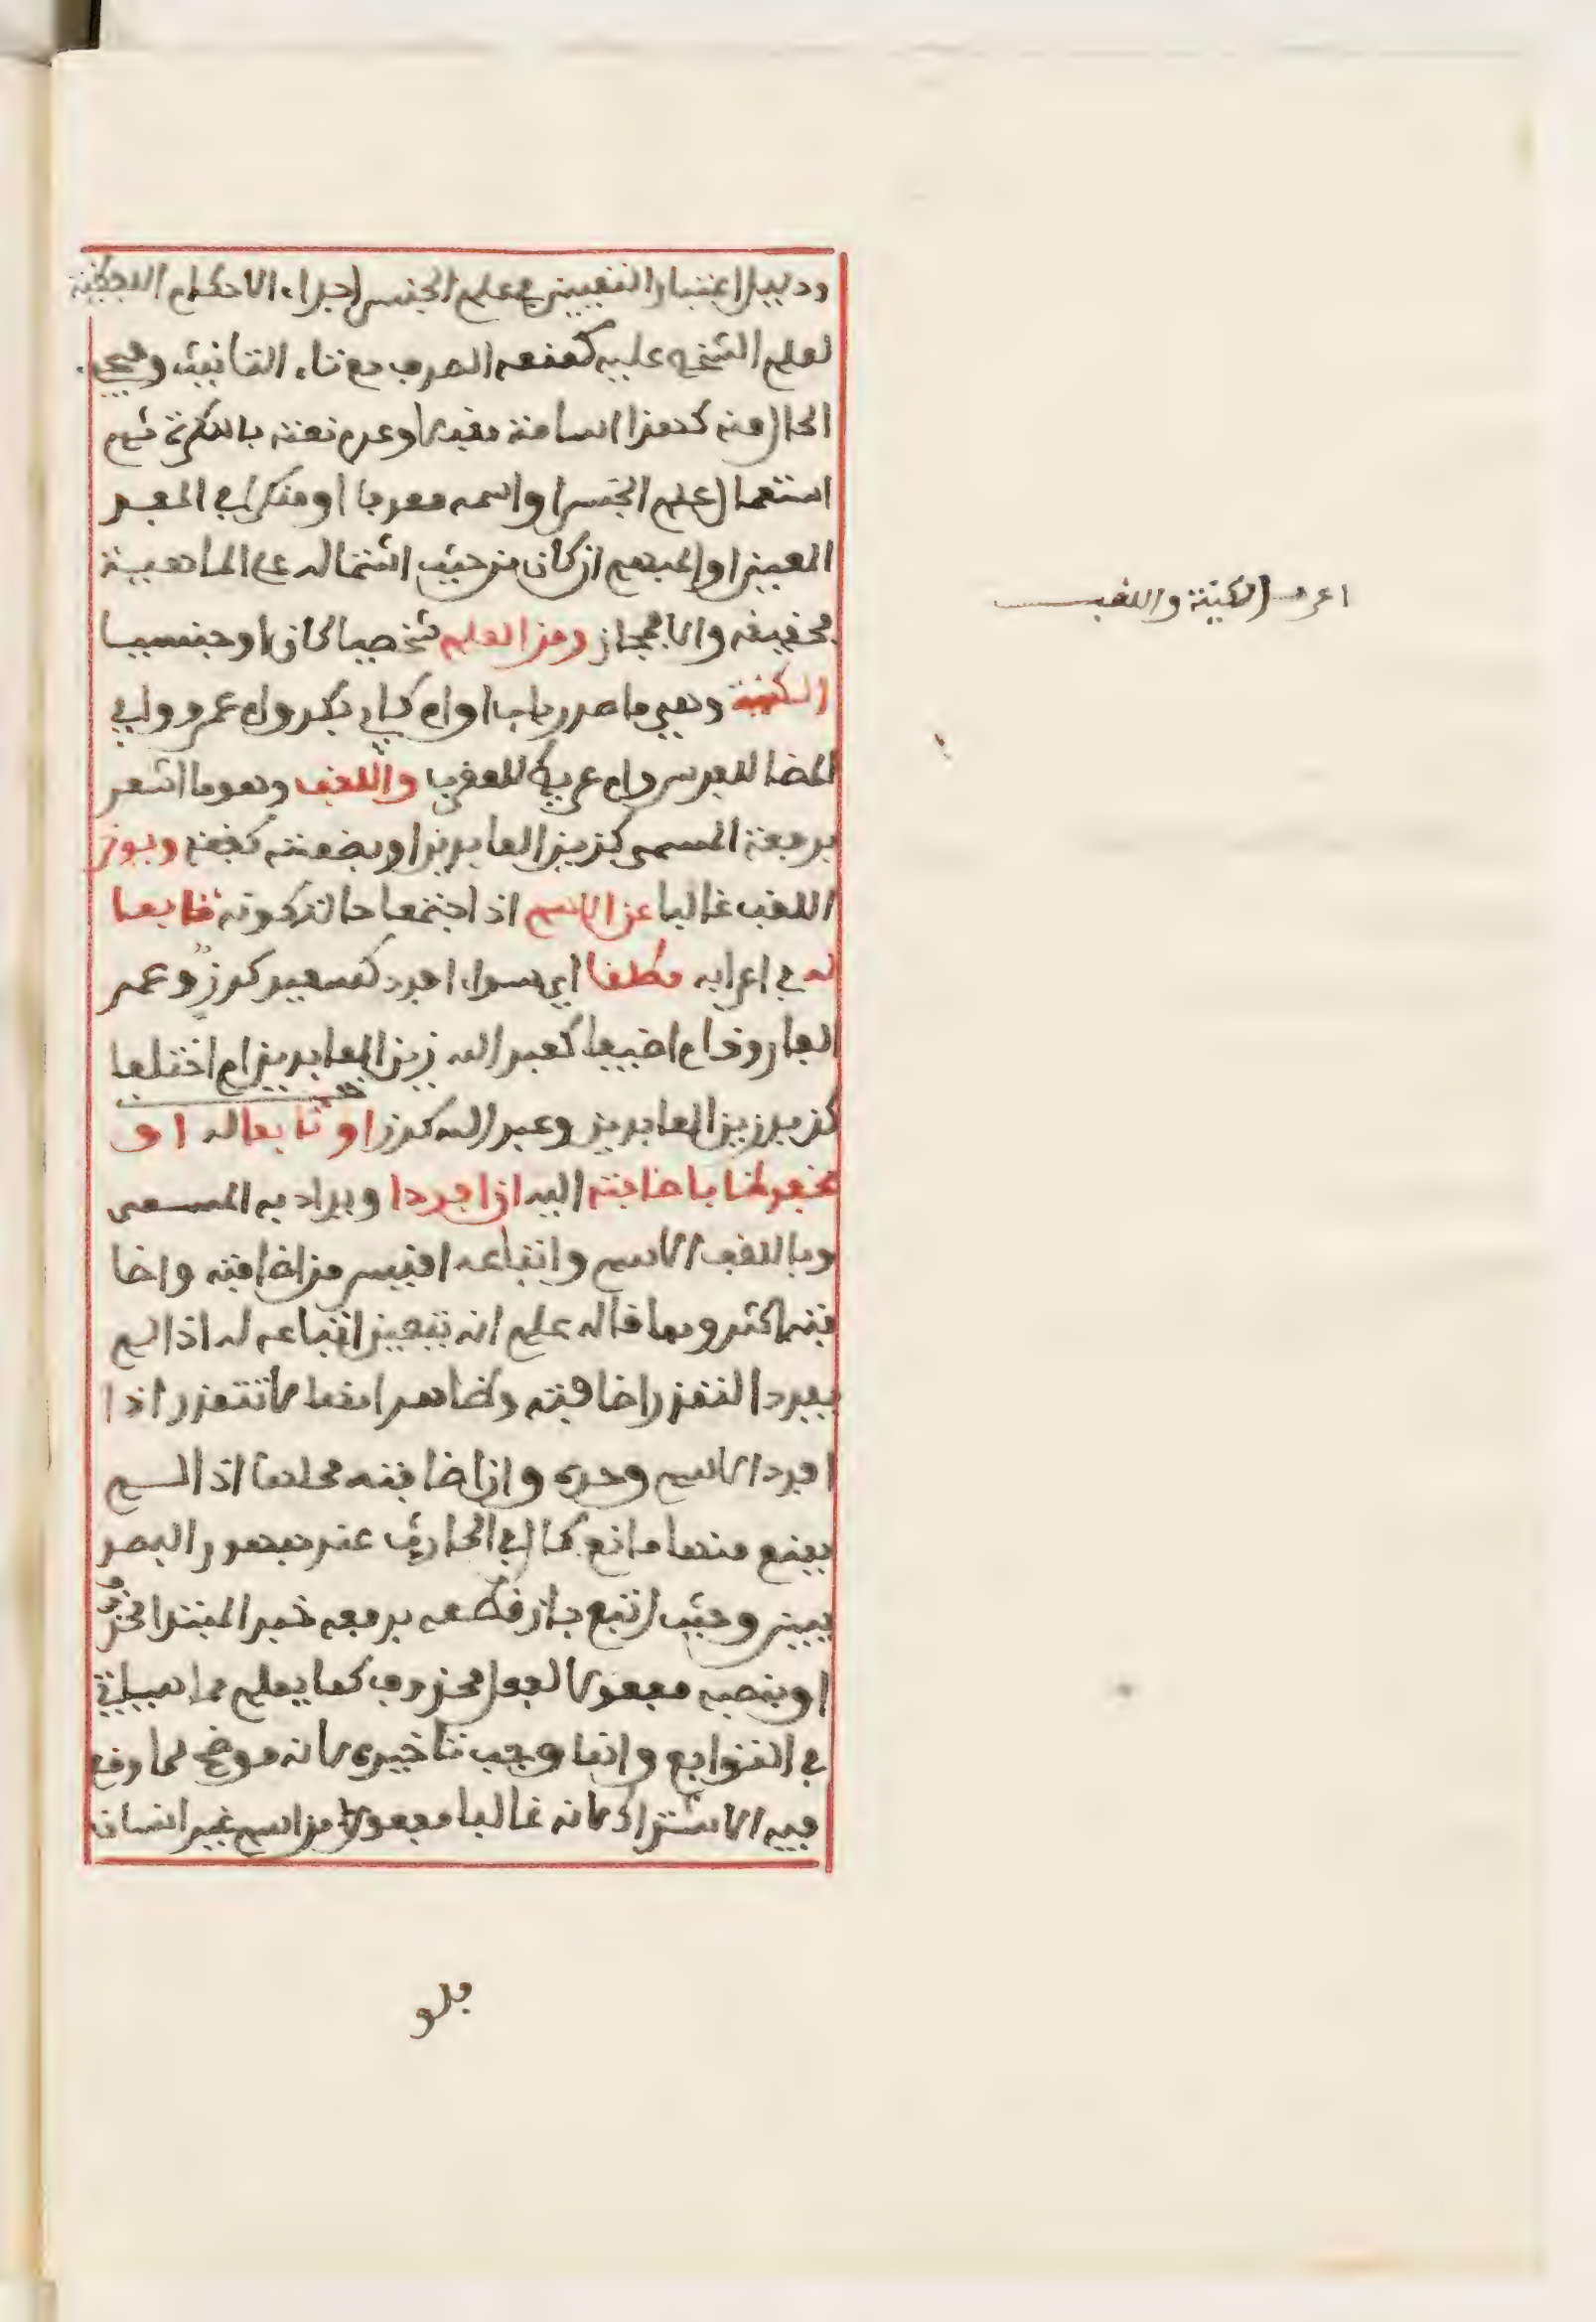 ودليل اعتبار التعيين في علم الجنس اجراء الاحكام اللفظية
لعلم الشخص عليه كمنعه الصرف مع تاء التانيث ومجيء
الحال منه كهذا اسامة مقبلا وعدم نعته بالنكرة ثم
استعمال علم الجنس او اسمه معرفا او منكرا في الفرد
المعين او المبهم ان كان من حيث اشتماله على الماهية
فحقيقة والا فمجاز ومن العلم شخصيا كان او جنسيا
الكنية وهي ما صدر باب او ام كابي بكر وام عمرو وابي
المضا للفرس وام عريط للعقرب واللقب وهو ما اشعر
برفعة المسمى كزين العابدين او بضعته كقفة ويوخر
اللقب غالبا عن الاسم اذا اجتمعا حالة كونه تابعا
له في اعرابه مطلقا اي سواء افردا كسعيد كرز وعمر
الفاروق ام اضيفا كعبد الله زين العابدين ام اختلفا
كزيد زين العابدين وعبد الله كرز او تابعا له او
مخفوضا باضافته اليه ان افردا ويراد به المسمى
وباللقب الاسم واتباعه اقيس من اضافته واضا
فته اكثر وبما قاله علم انه يتعين اتباعه له اذا لم
يفردا لتعذر اضافته وظاهر انها لا تتعذر اذا
افرد الاسم وحده وان اضافته محلها اذا لم
يمنع منها مانع كال في الحارث عند جمهور البصر
يين وحيث اتبع جاز قطعه برفعه خبرا لمبتدا محذوف
او بنصبه مفعولا لفعل محذوف كما يعلم مما سياتي
في التوابع وانما وجب تاخيره لانه موضح لما وقع
فيه الاشتراك لانه غالبا مفعول من اسم غير انسان
اعرف الكنية واللقب
فلو